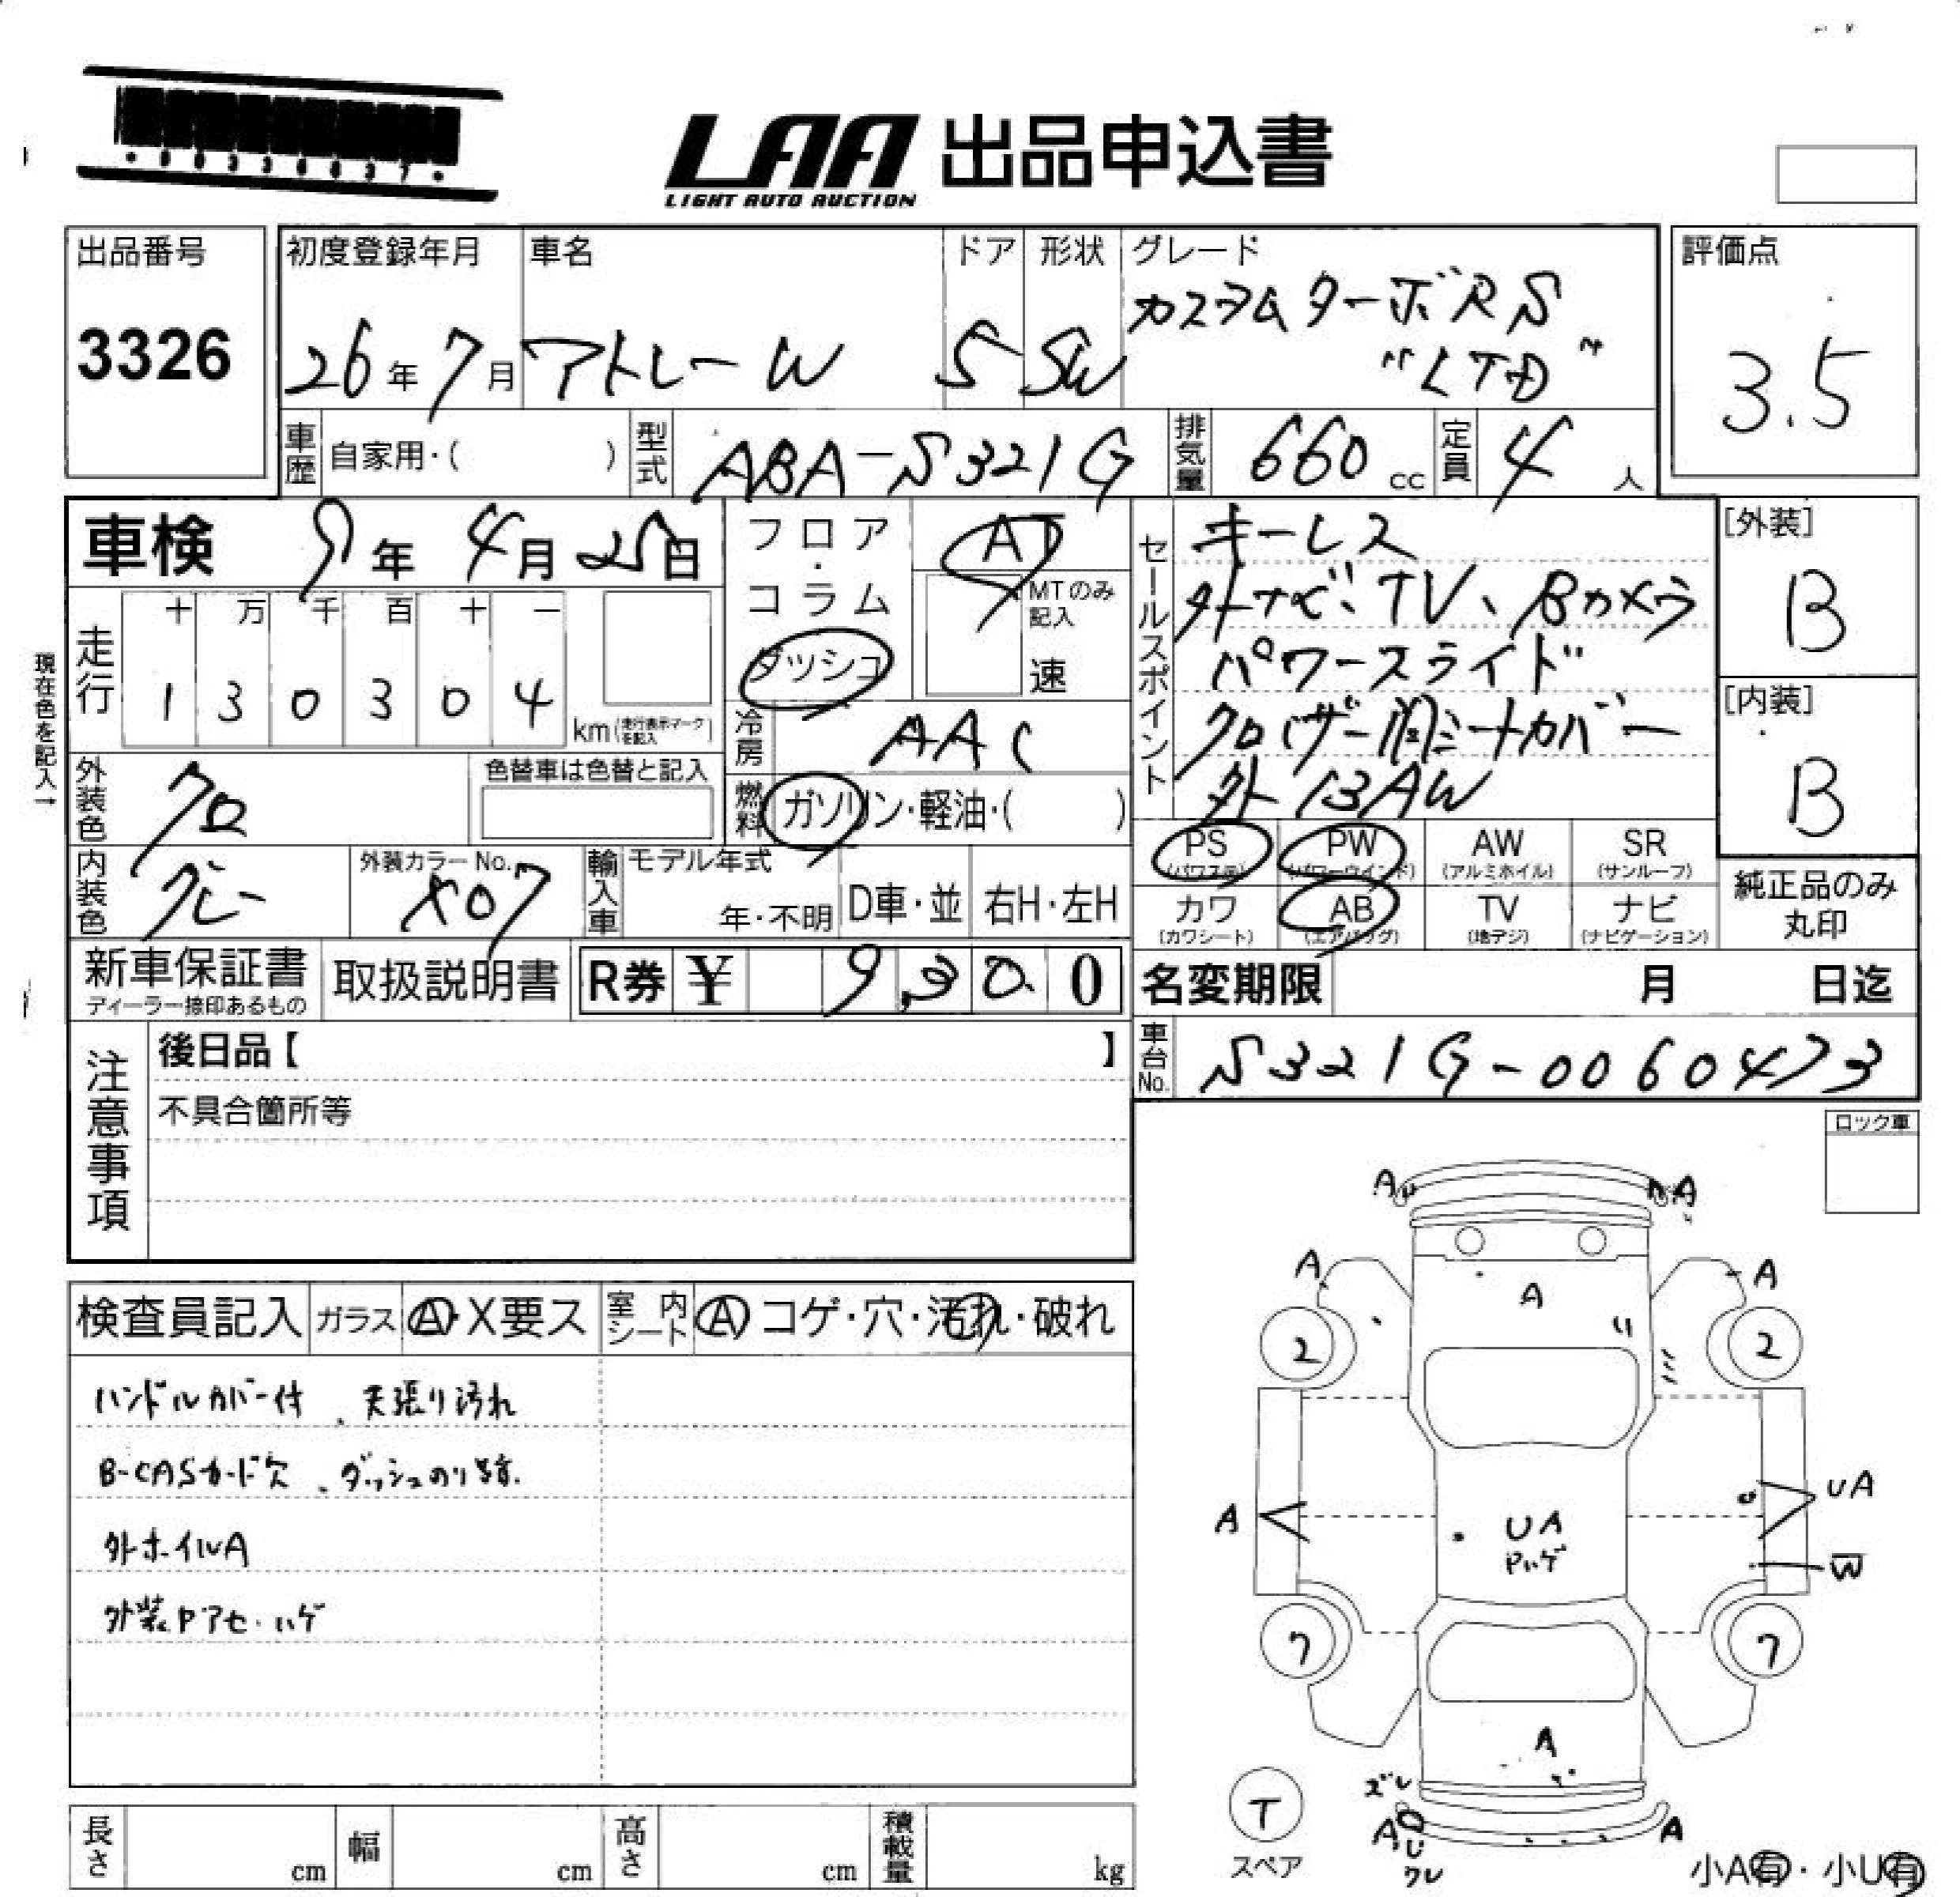 LAA 出品申込書
LIGHT AUTO AUCTION
出品番号
3326
初度登録年月
26年7月
車名
アトレーW
ドア
5
形状
SW
グレード
カスタムターボRS
"LTD"
評価点
3.5
車歴
自家用・( )
型式
ABA-S321G
排気量
660cc
定員
4人
車検 9年4月25日
フロア・コラム
ダッシュ
AT
MTのみ記入
速
走行
十 万 千 百 十 一
1 3 0 3 0 4
km(走行表示マークを記入)
現在色を記入→
冷房
AAC
燃料
ガソリン・軽油・( )
外装色
クロ
色替車は色替と記入
内装色
グレー
外装カラーNo.
X07
輸入車
モデル年式
年・不明
D車・並
右H・左H
セールスポイント
キーレス
外ナビ、TV、Bカメラ
パワースライド
シートカバー
外13AW
[外装]
B
[内装]
B
PS
(パワステ)
PW
(パワーウインド)
AW
(アルミホイル)
SR
(サンルーフ)
カワ
(カワシート)
AB
(エアバッグ)
TV
(地デジ)
ナビ
(ナビゲーション)
純正品のみ
丸印
新車保証書
ディーラー捺印あるもの
取扱説明書
R券 ¥ 9,300
名変期限 月 日迄
車台No.
S321G-0060473
注意事項
後日品【 】
不具合箇所等
ロック車
検査員記入
ガラス
A・X要ス
室内シート
A コゲ・穴・汚れ・破れ
ハンドルカバー付、天張り汚れ
B-CASカード欠、ダッシュのり跡
外ホイルA
外装Pアセ・ハゲ
A A
A A
A
2 2
A
UA
W
UA
Pハゲ
7 7
A
ズレ
A A
ワレ
T
スペア
小A有・小U有
長さ cm
幅 cm
高さ cm
積載量 kg